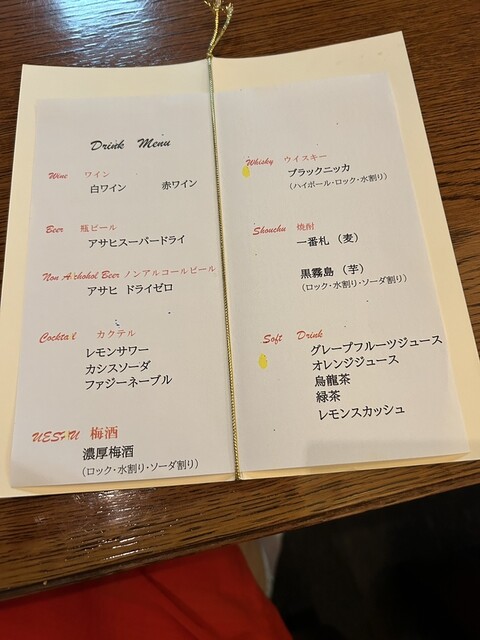 Drink Menu
Wine ワイン
白ワイン 赤ワイン
Beer 瓶ビール
アサヒスーパードライ
Non Alchohol Beer ノンアルコールビール
アサヒ ドライゼロ
Cocktail カクテル
レモンサワー
カシスソーダ
ファジーネーブル
UESHU 梅酒
濃厚梅酒
（ロック・水割り・ソーダ割り）
Whisky ウイスキー
ブラックニッカ
（ハイボール・ロック・水割り）
Shouchu 焼酎
一番札 （麦）
黒霧島 （芋）
（ロック・水割り・ソーダ割り）
Soft Drink
グレープフルーツジュース
オレンジジュース
烏龍茶
緑茶
レモンスカッシュ